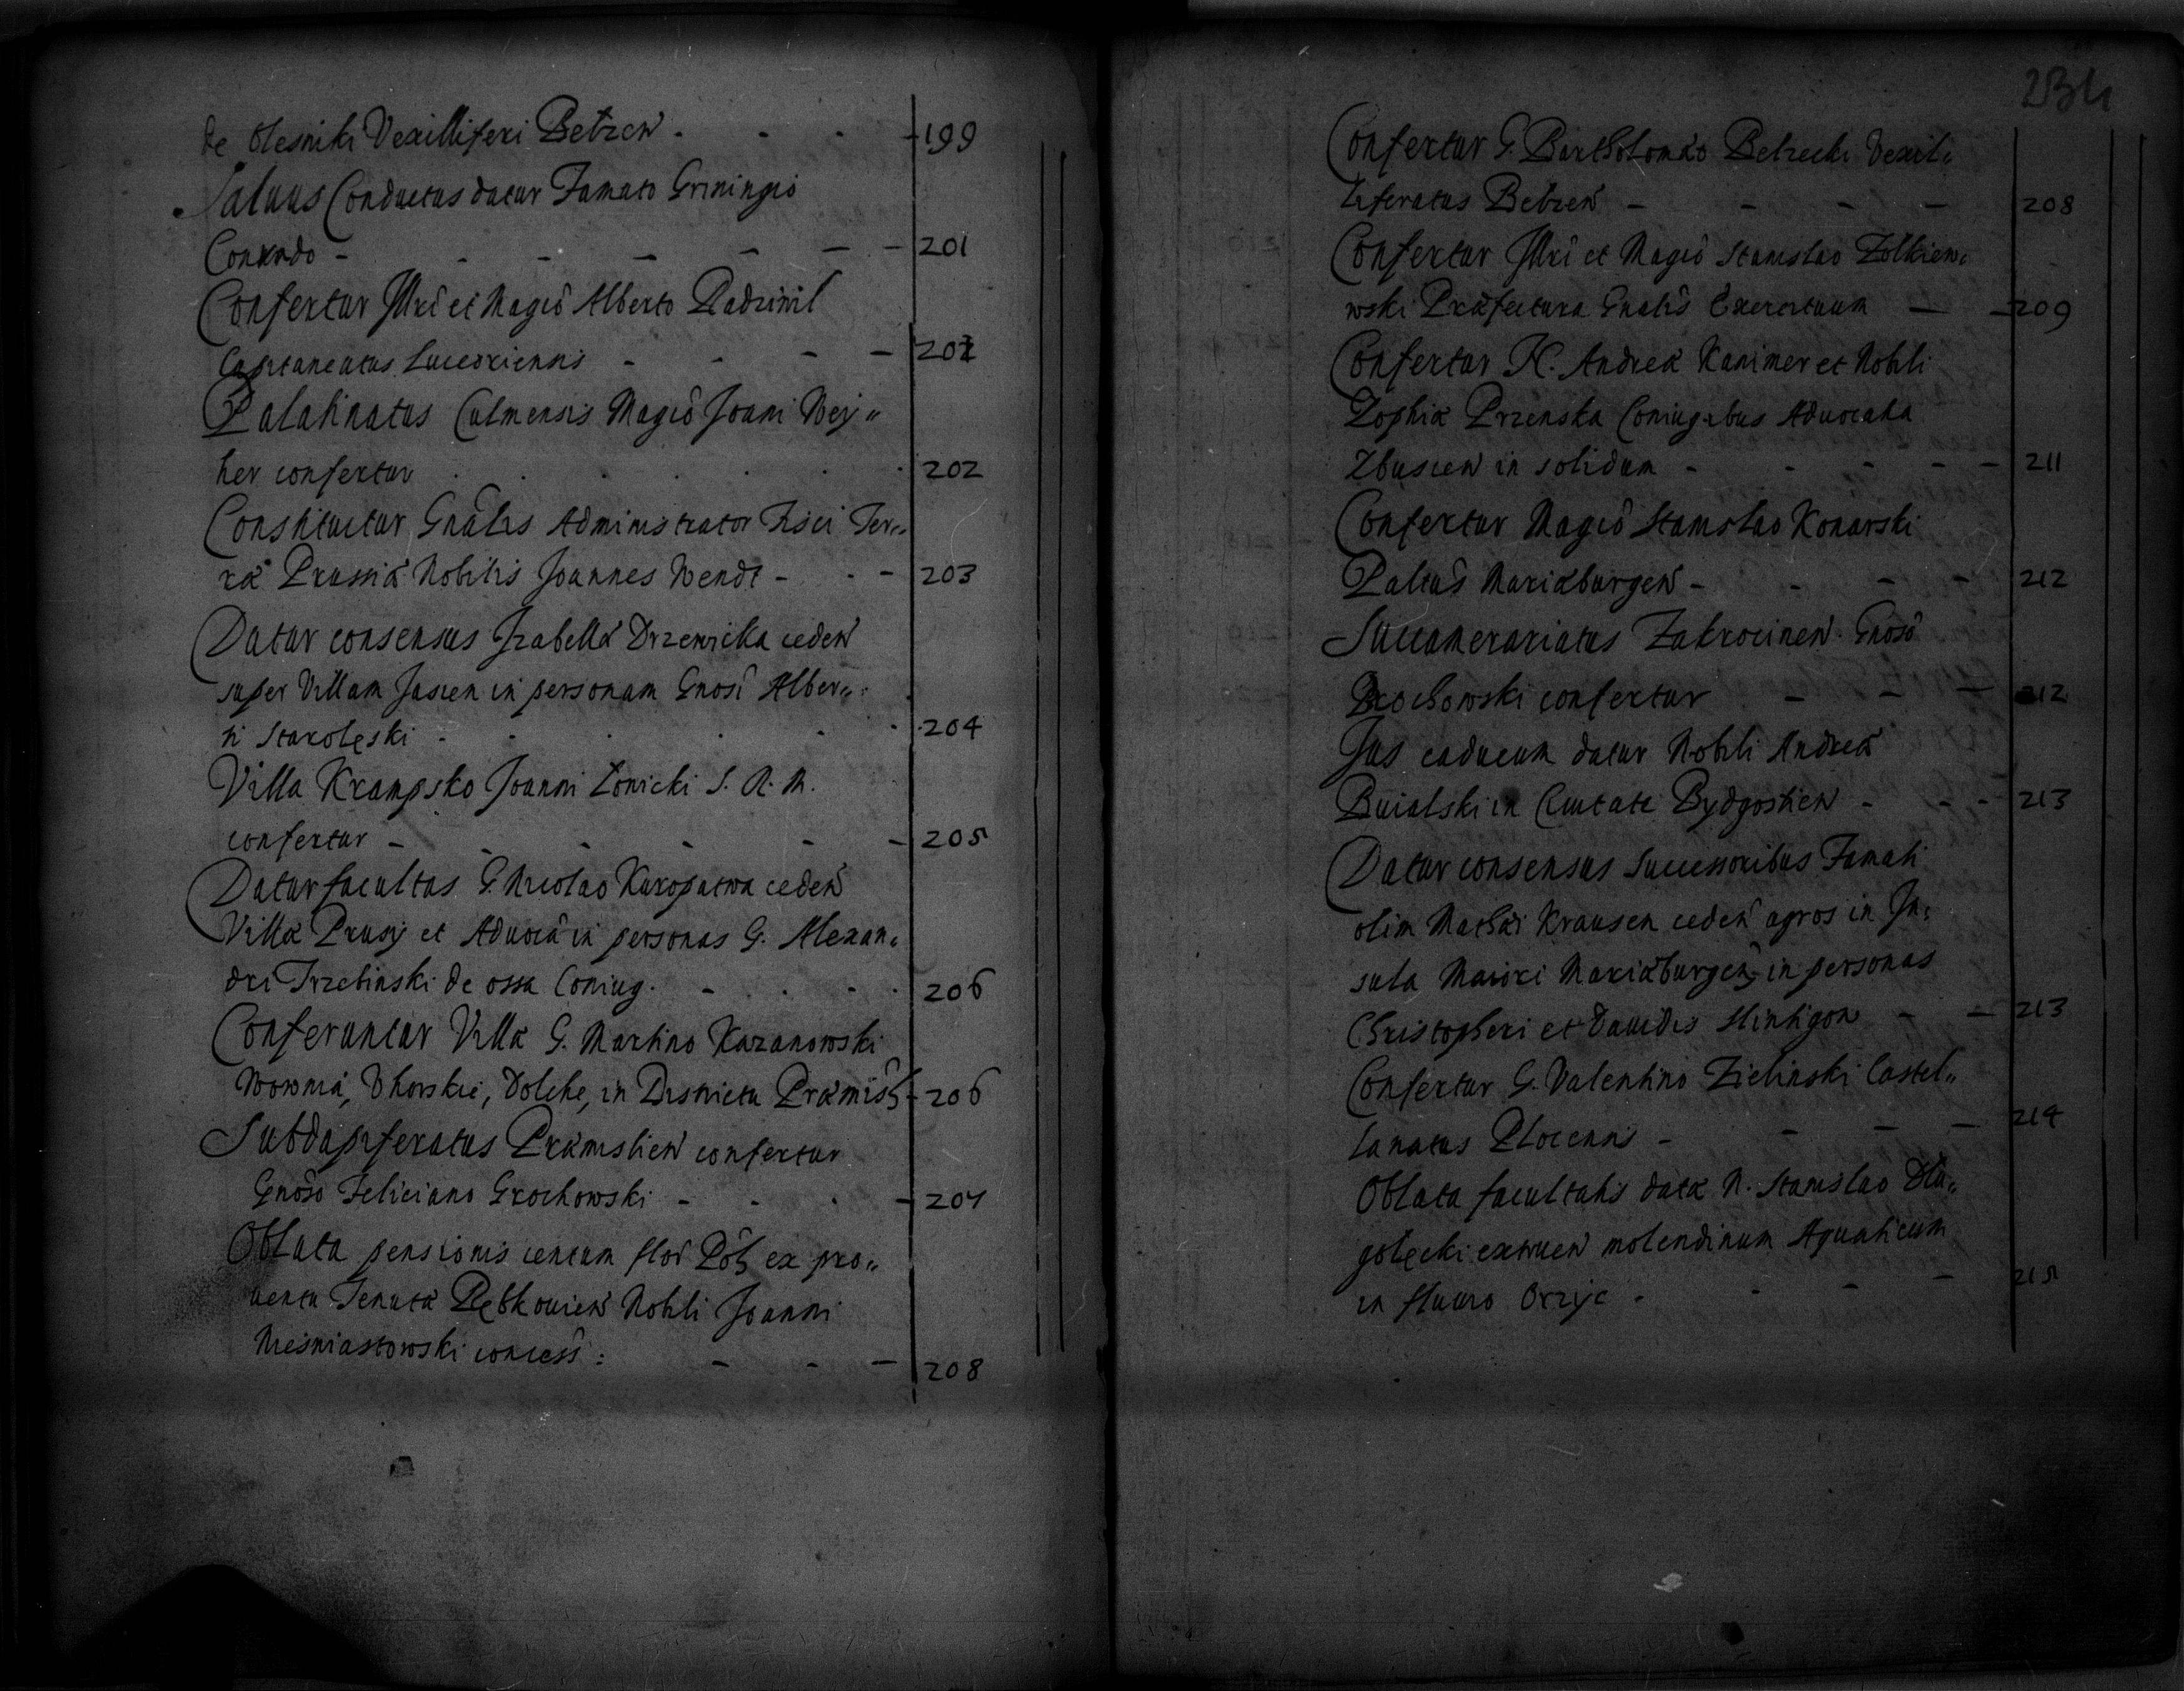 de Olesniki Vexilliferi Betzen̄ - - - 199
Saluus Conductus datur Famato Griningio
Conrado - - - - - - 201
Confertur Illri et Magco Alberto Radziwil
Capitaneatus Luceoriensis - - - - 201
Palatinatus Culmensis Magco Joani Wey„
her confertur . . . . . 202
Constituitur Gnalis Administrator Fisci Ter„
ræ Prussiæ Nobilis Joannes Wendt - - - 203
Datur consensus Izabellæ Drzewicka ceden̄
super Villam Jasien in personam Gnosi Alber„
ti Starolęski - . . . . 204
Villa Krampsko Joanni Łonicki S. R. M.
confertur - - - - - - 205
Datur facultas G. Nicolao Kuropatwa ceden̄
Villæ Prusy et Aduocia in personas G. Alexan„
dri Trzebinski de ossa Coniug. - . . . 206
Conferuntur Villæ G. Martino Kazanowski
Wownia, Uhorskie, Dolche, in Districtu Præmis̄ 206
Subdapiferatus Præmislien̄ confertur
Gnoso Feliciano Grochowski - - . - 207
Oblata pensionis centum flor Pol ex pro„
uentu Tenutæ Dębkouien̄ Nobili Joanni
Niesmiastowski concess: - - - 208
234
Confertur G. Bartholomæo Betzecki Vexil„
liferatus Betzen̄ - - - - 208
Confertur Illri et Magco Stanislao Zolkiew„
wski Præfectura Gnalis Exercituum - - 209
Confertur N. Andreæ Kanimer et Nobili
Zophiæ Przenska Coniugibus Aduocatia
Zbuscen̄ in solidum - - - - - 211
Confertur Magco Stanislao Konarski
Paltus Mariæburgen̄ - - - - 212
Succamerariatus Zakrocimen̄ Gnoso
Prochowski confertur - - - 212
Jus caducum datur Nobili Andreæ
Buialski in Ciuitate Bydgostien̄ - - - 213
Datur consensus Successoribus Famati
olim Mathæi Krausen ceden̄ agros in In„
sula Maiori Mariæburgen̄ in personas
Christopheri et Dauidis Hintigon - - 213
Confertur G. Valentino Zielinski Castel„
lanatus Plocensis - - - - 214
Oblata facultatis datæ N. Stanislao Dlu„
golęcki extruen̄ molendinum Aquaticum
in fluuio Orzyc - - - - 215